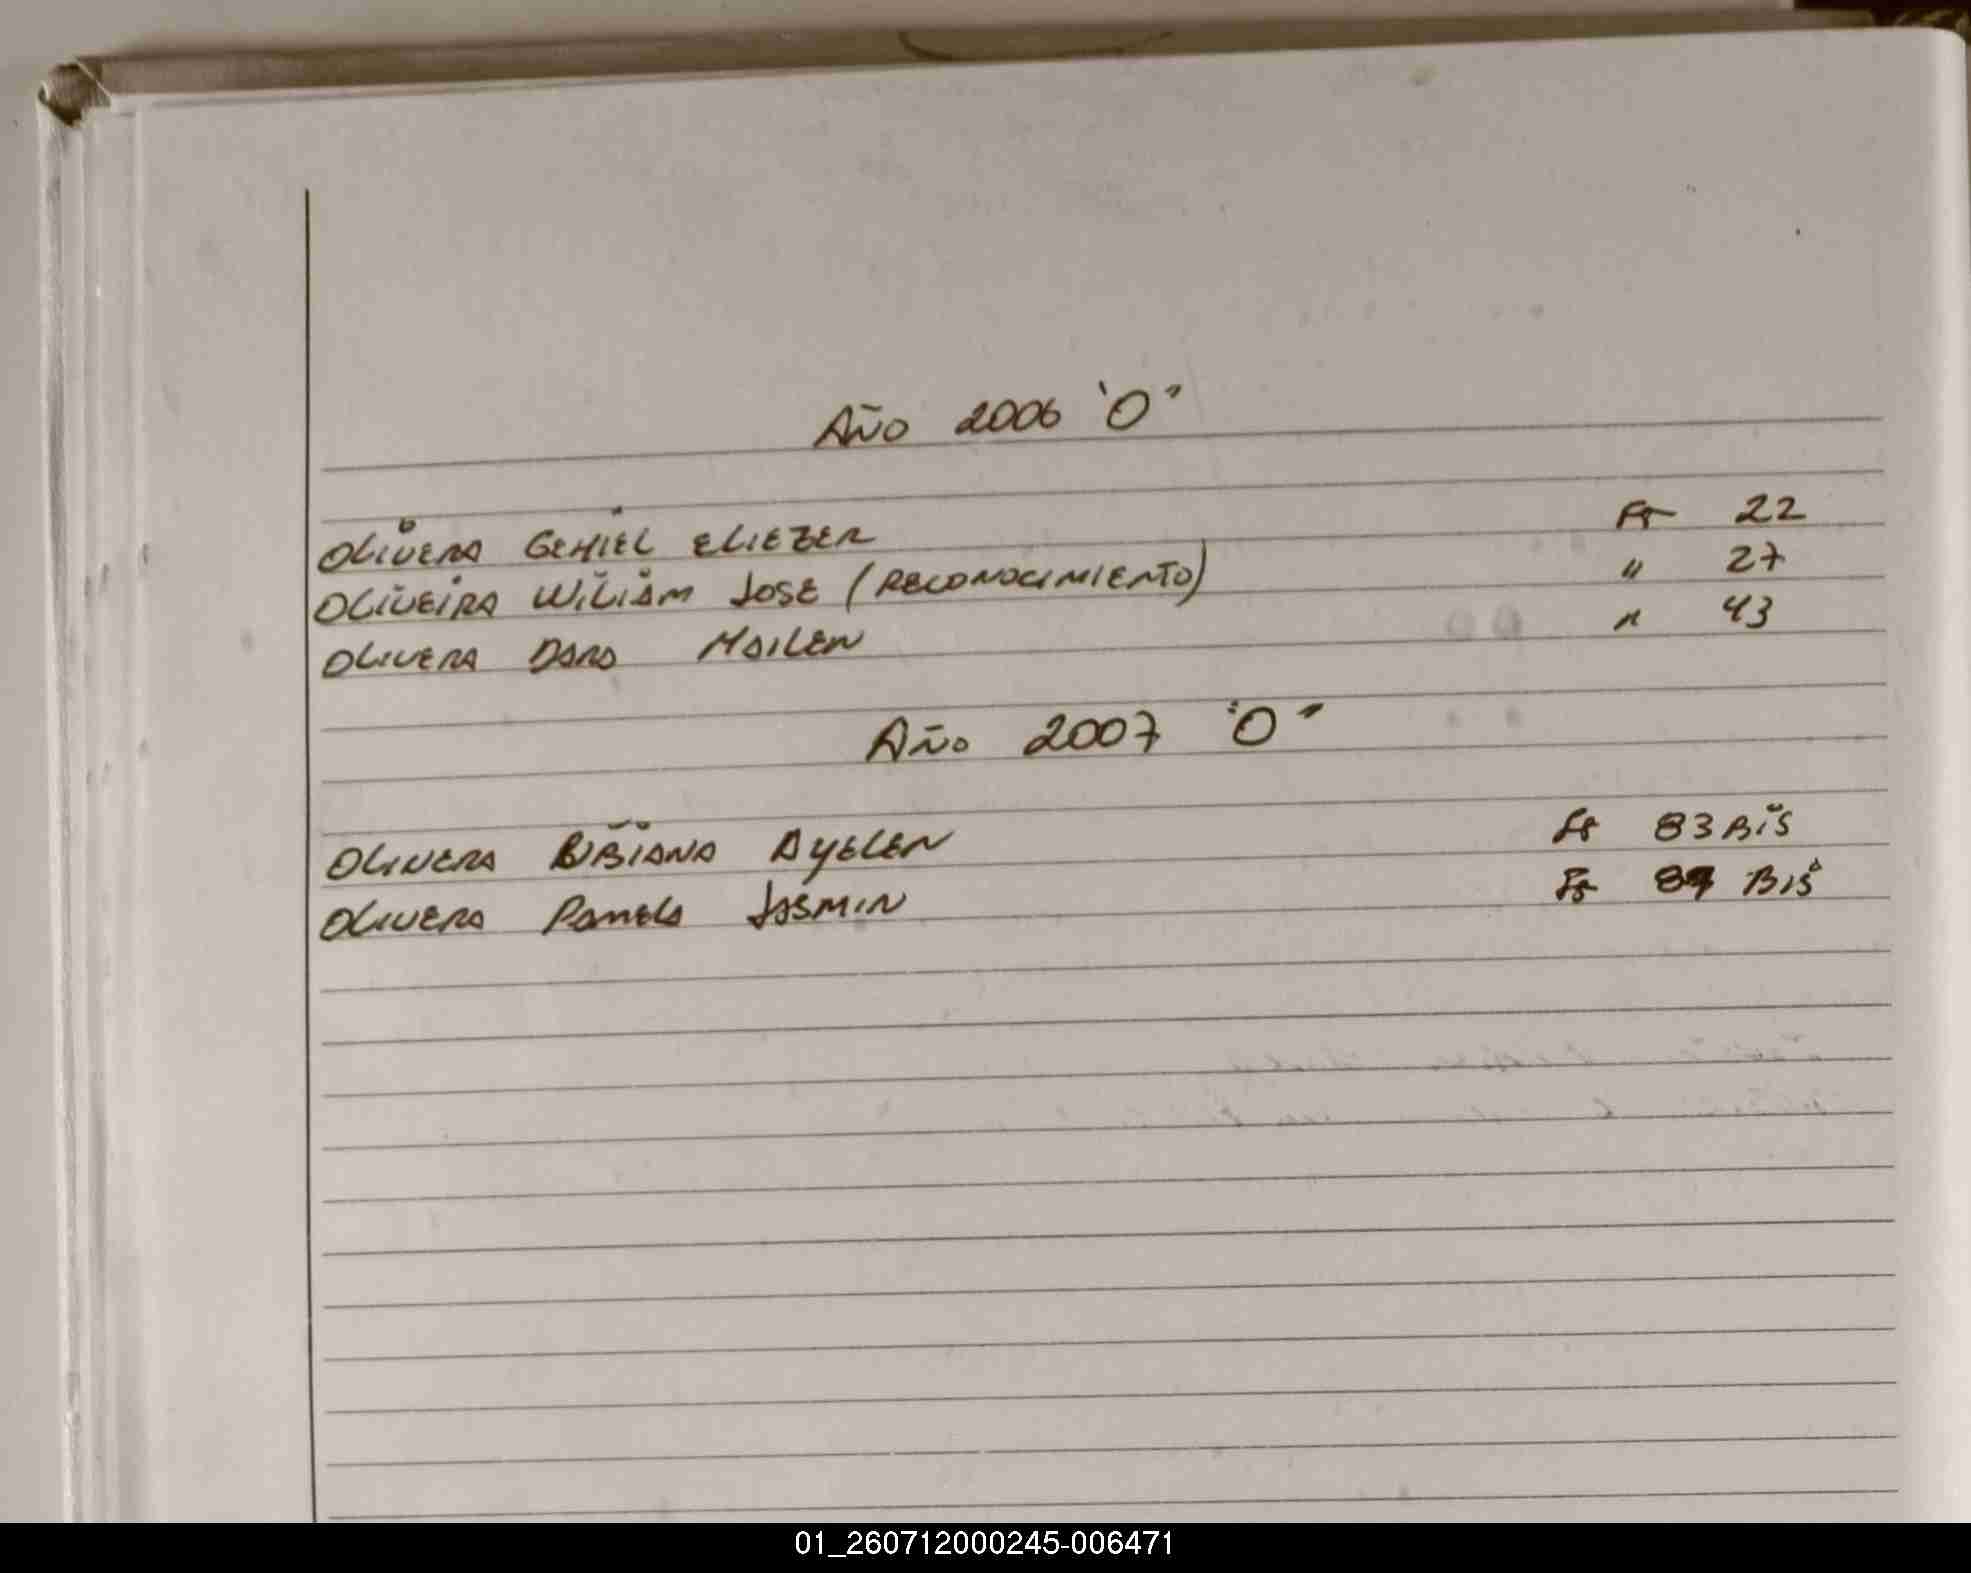 Año 2006 "O"
OLIVERA GEMIEL ELIEZER Fº 22
OLIVEIRA WILIAM JOSE (RECONOCIMIENTO) " 27
OLIVERA DARA MAILEN " 43
Año 2007 "O"
OLIVERA BIBIANA AYELEN Fº 83 BIS
OLIVERA PAMELA JASMIN Fº BIS
01_260712000245-006471